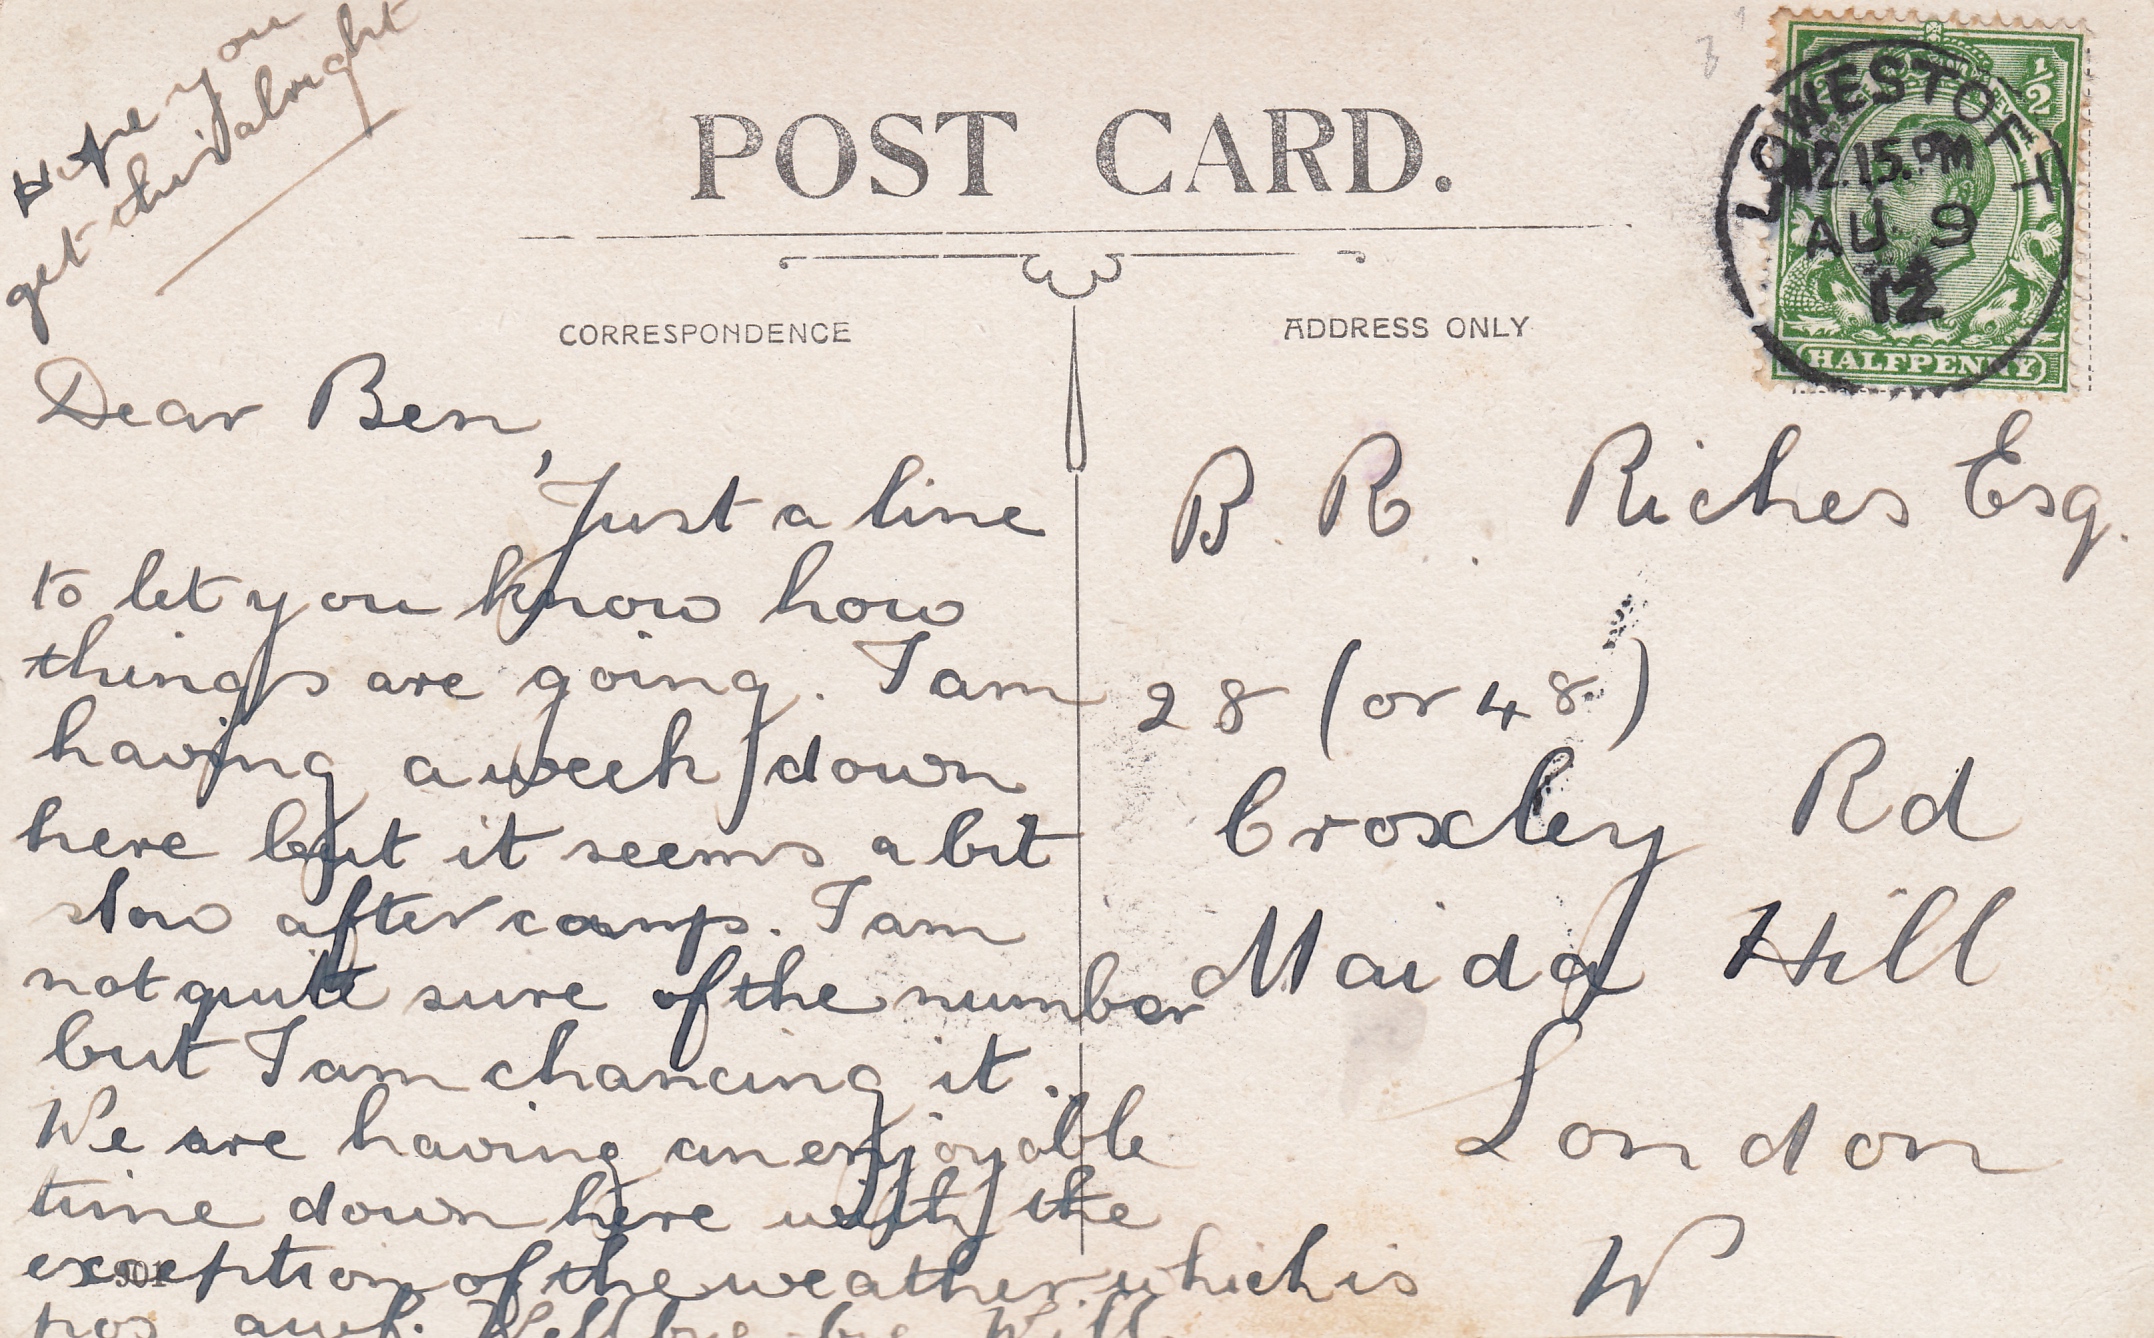 Hope you
get this alright
POST CARD.
CORRESPONDENCE
ADDRESS ONLY
LOWESTOFT
12.15.PM
AU 9
12
1/2
HALFPENNY
Dear Ben,
Just a line
to let you know how
things are going. I am
having a week down
here but it seems a bit
slow after camp. I am
not quite sure of the number
but I am chancing it.
We are having an enjoyable
time down here with the
exception of the weather which is
pos. awf. Well bye-bye Will
B. R. Riches Esq.
28 (or 48)
Croxley Rd
Maida Hill
London
W